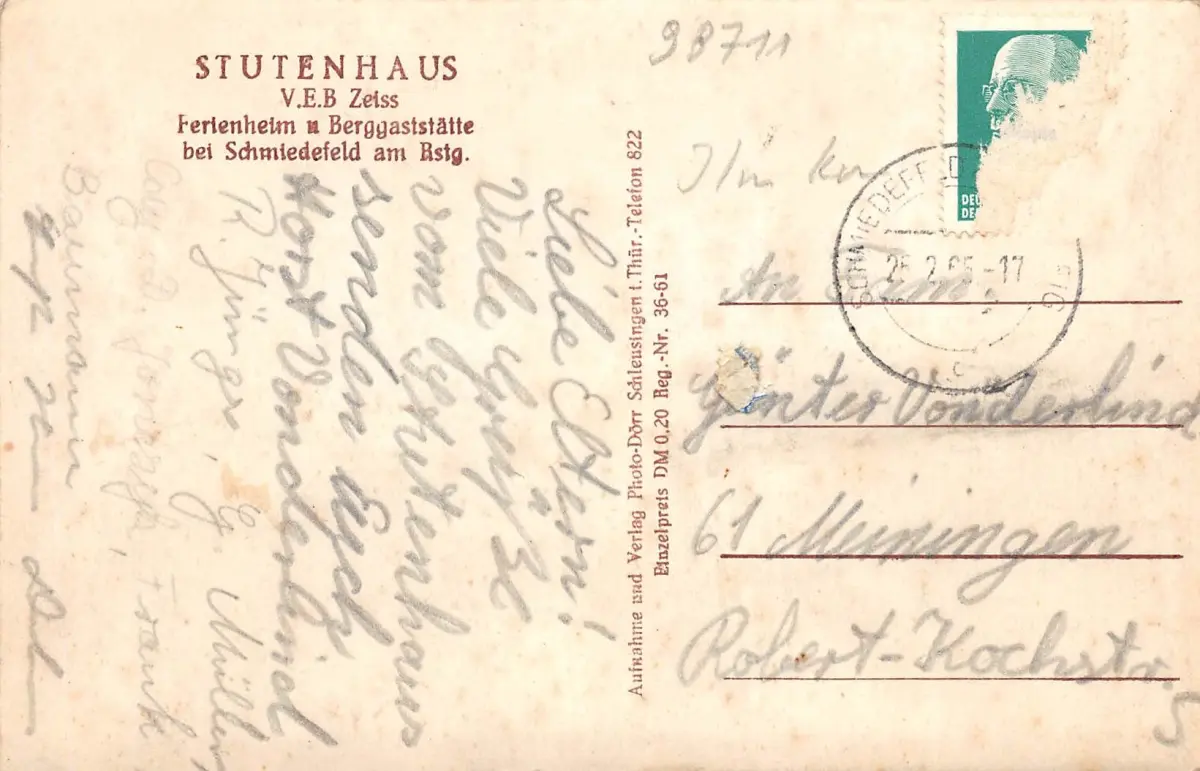 STUTENHAUS
V.E.B Zeiss
Ferienheim u Berggaststätte
bei Schmiedefeld am Rstg.
Liebe Eltern!
Viele Grüße
vom Stutenhaus
senden Euch
Horst Vonderlind
R. Jünger, G. Müller,
Frank
Baumann
Aufnahme und Verlag Photo-Dörr Schleusingen i. Thür.-Telefon 822
Einzelpreis DM 0,20 Reg.-Nr. 36-61
98711
DEU
DE
SCHMIEDEFELD
25.2.65-17
An Fam.
Günter Vonderlind
61 Meiningen
Robert-Kochstr. 5